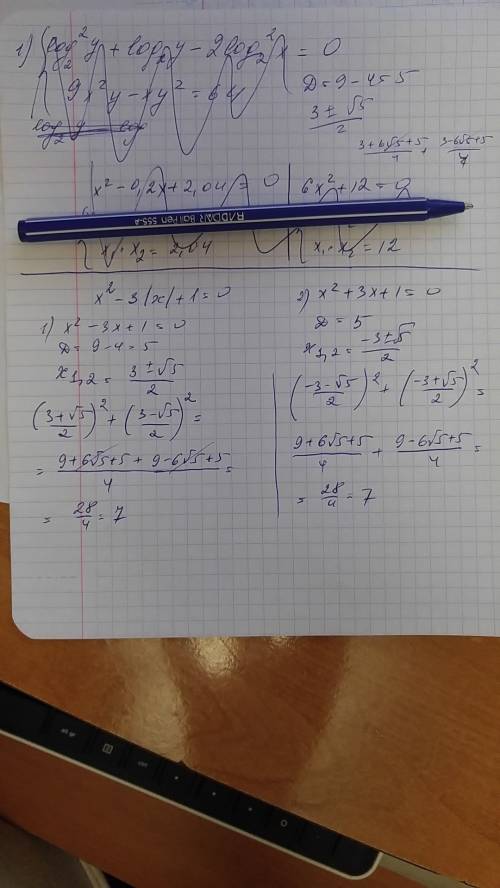 1) { log₂² y + log₂ y − 2log₂² x = 0
9x²y − xy² = 64
D = 9 − 4 = 5
3 ± √5 / 2
3+6√5+5 / 4 + 3−6√5+5 / 4
x² − 0,2x + 2,04 = 0
6x² + 12 = 0
RADAR Ball Pen 555-A
x₁ · x₂ = 2,04
x₁ · x₂ = 12
x² − 3|x| + 1 = 0
1) x² − 3x + 1 = 0
D = 9 − 4 = 5
x₁,₂ = 3 ± √5 / 2
(3+√5 / 2)² + (3−√5 / 2)² =
= 9+6√5+5 + 9−6√5+5 / 4 =
= 28/4 = 7
2) x² + 3x + 1 = 0
D = 5
x₁,₂ = −3±√5 / 2
(−3−√5 / 2)² + (−3+√5 / 2)² =
9+6√5+5 / 4 + 9−6√5+5 / 4 =
= 28/4 = 7